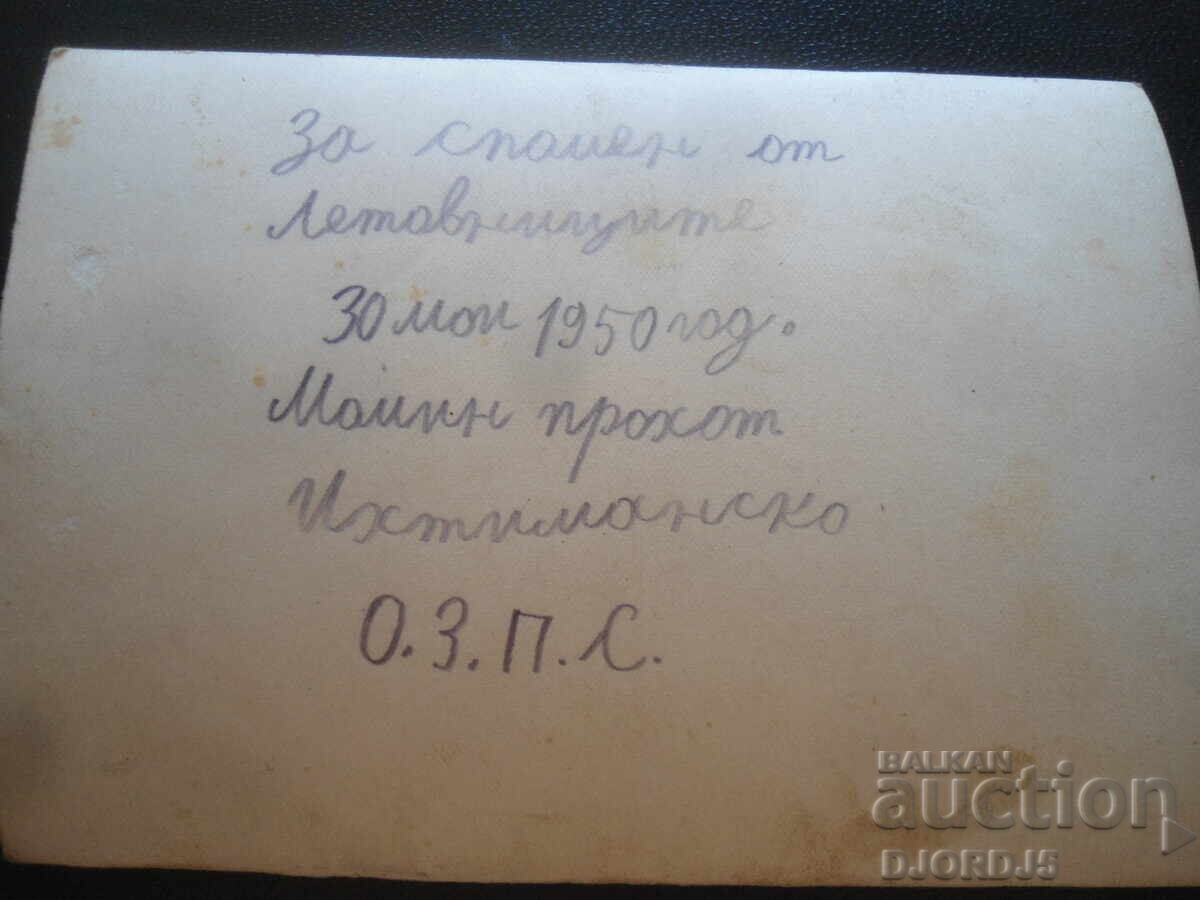 За спомен от
Летовниците
30 мои 1950 год.
Момин прохот
Ихтиманско
О.З.П.С.
BALKAN
auction
DJORDJ5